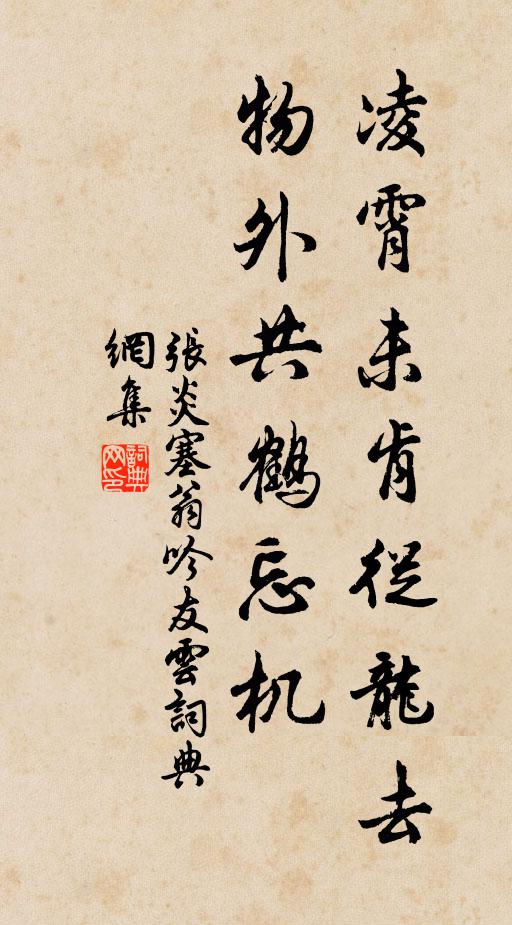 凌霄未肯從龍去
物外共鶴忘机
張炎塞翁吟友雲詞典
網集
詞典
网印